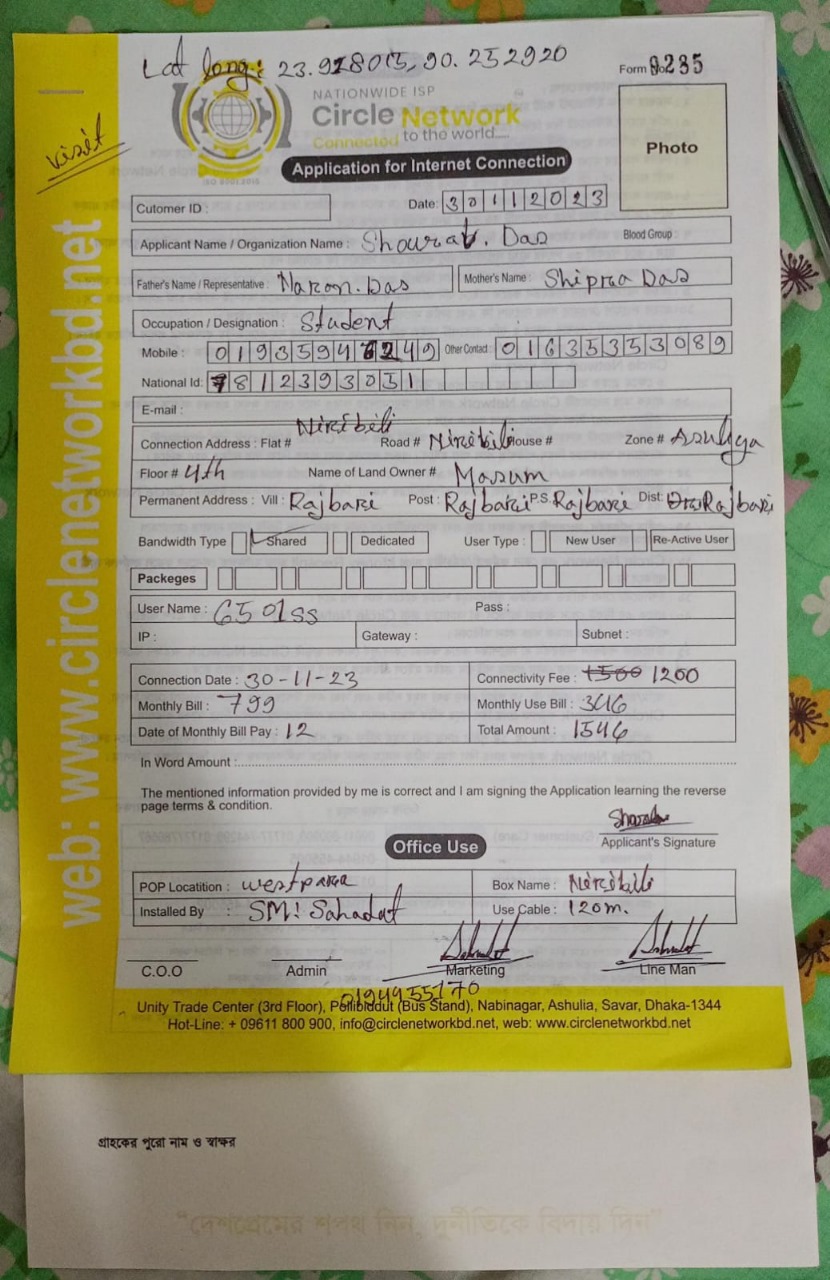 Lat long: 23.928015, 90.252920
Form No 9235
visit
NATIONWIDE ISP
Circle Network
Connected to the world....
ISO 9001:2015
Application for Internet Connection
Photo
Cutomer ID :
Date: 30112023
Applicant Name / Organization Name : Shourab. Das Blood Group :
Father's Name / Representative : Naron. Das Mother's Name : Shipra Das
Occupation / Designation : Student
Mobile : 01935946249 Other Contact : 01635353089
National Id: 7812393051
E-mail :
Connection Address : Flat # Niribili Road # Niribili House # Zone # Asuliya
Floor # 4th Name of Land Owner # Masum
Permanent Address : Vill : Rajbari Post : Rajbari P.S. Rajbari Dist: Rajbari
Bandwidth Type Shared Dedicated User Type : New User Re-Active User
Packeges
User Name : 6501ss Pass :
IP : Gateway : Subnet :
Connection Date : 30-11-23 Connectivity Fee : 1500 1200
Monthly Bill : 799 Monthly Use Bill : 346
Date of Monthly Bill Pay : 12 Total Amount : 1546
In Word Amount :
The mentioned information provided by me is correct and I am signing the Application learning the reverse
page terms & condition.
Applicant's Signature
Office Use
POP Locatition : westpara Box Name : Niribili
Installed By : SM! Sahadat Use Cable : 120m.
C.O.O Admin Marketing Line Man
Unity Trade Center (3rd Floor), Pollibiddut (Bus Stand), Nabinagar, Ashulia, Savar, Dhaka-1344
Hot-Line: + 09611 800 900, info@circlenetworkbd.net, web: www.circlenetworkbd.net
web: www.circlenetworkbd.net
গ্রাহকের পুরো নাম ও স্বাক্ষর
"দেশপ্রেমের শপথ নিন, দুর্নীতিকে বিদায় দিন"